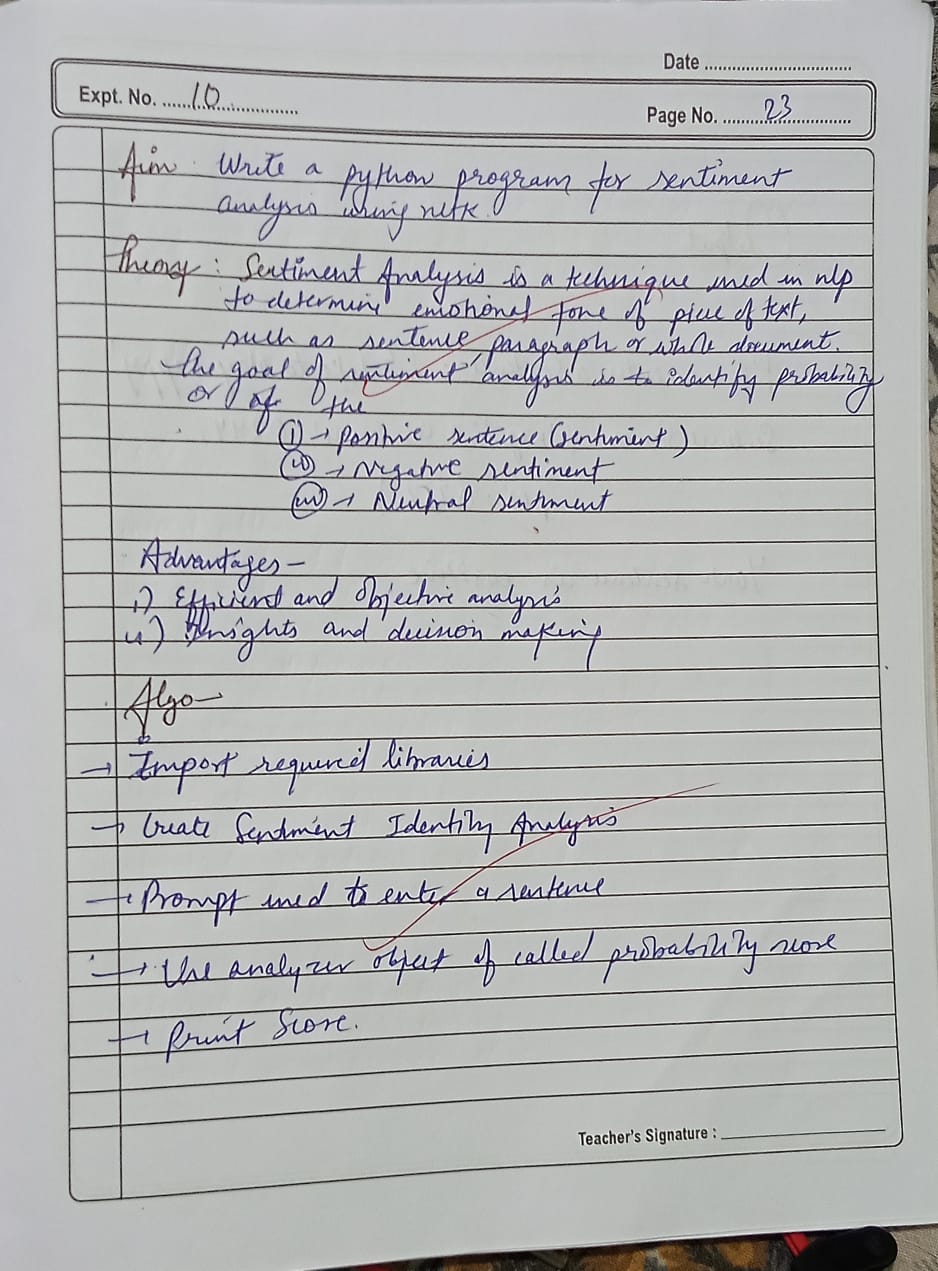 Date
Expt. No. 10
Page No. 23
Aim : Write a python program for sentiment
analysis using nltk.
Theory : Sentiment Analysis is a technique used in nlp
to determine emotional tone of piece of text,
such as sentence, paragraph or whole document.
The goal of sentiment analysis is to identify probability
or of the
(i) → positive sentence (sentiment)
(ii) → Negative sentiment
(iii) → Neutral sentiment
Advantages –
i) Efficient and Objective analysis
ii) Insights and decision making
Algo –
→ Import required libraries
→ Create Sentiment Identity Analysis
→ Prompt used to enter a sentence
→ Use analyzer object of called probability score
→ Print Score.
Teacher's Signature :